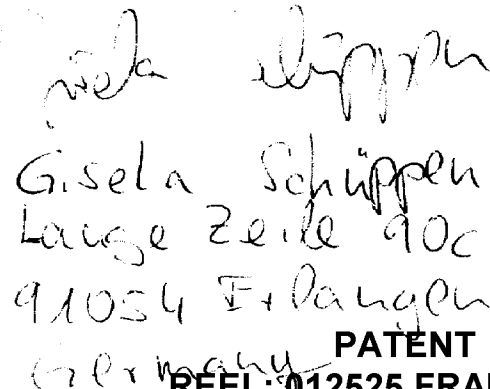 Gisela Schüppen
Gisela Schüppen
Lange Zeile 90c
91054 Erlangen
Germany
PATENT
REEL: 012525 FRAI